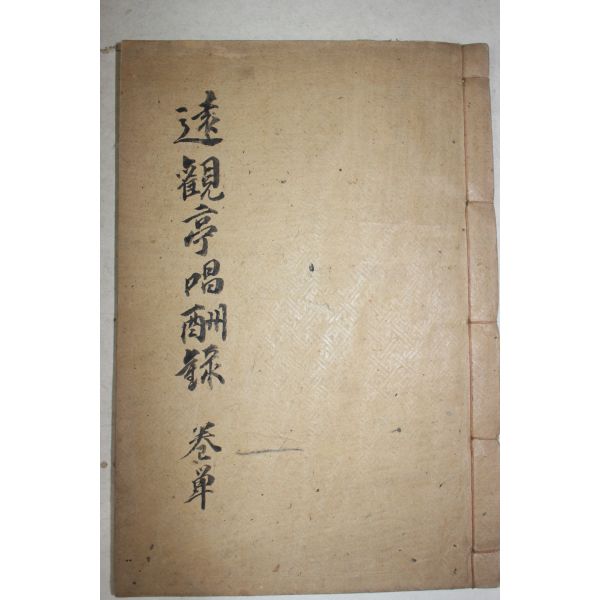 遠觀亭唱酬錄 卷单